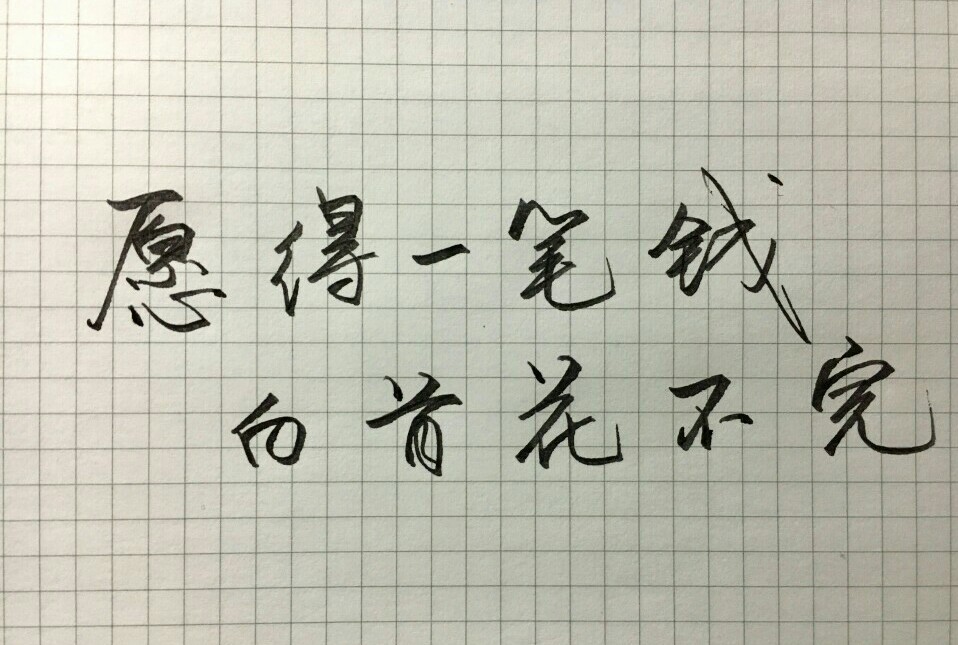 愿得一笔钱
白首花不完